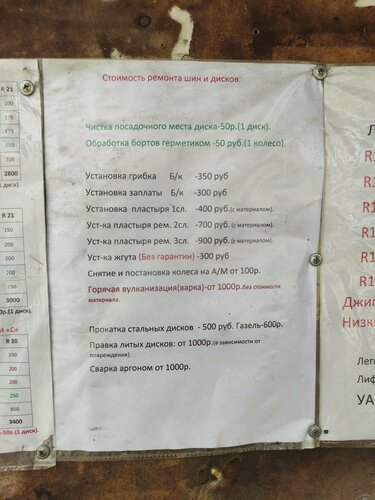 R 21
100
175
175
250
300
2800
(1 диск).
R 21
150
200
200
200
750
3000
0р.(1 диск).
И «С»
R 20
200
200
250
850
3400
-50р.(1 диск).
Стоимость ремонта шин и дисков
Чистка посадочного места диска-50р.(1 диск).
Обработка бортов герметиком -50 руб.(1 колесо).
Установка грибка Б/к -350 руб
Установка заплаты Б/к -300 руб
Установка пластыря 1сл. -400 руб.(с материалом).
Уст-ка пластыря рем. 2сл. -700 руб.(с материалом).
Уст-ка пластыря рем. 3сл. -900 руб.(с материалом).
Уст-ка жгута (Без гарантии) -300 руб
Снятие и постановка колеса на А/М от 100р.
Горячая вулканизация(варка)-от 1000р.без стоимости
материала.
Прокатка стальных дисков - 500 руб. Газель-600р.
Правка литых дисков: от 1000р.(в зависимости от
повреждения).
Сварка аргоном от 1000р.
Л
R1
R1
R1
R1
R1
R1
Джип
Низк
Легк
Лиф
УА